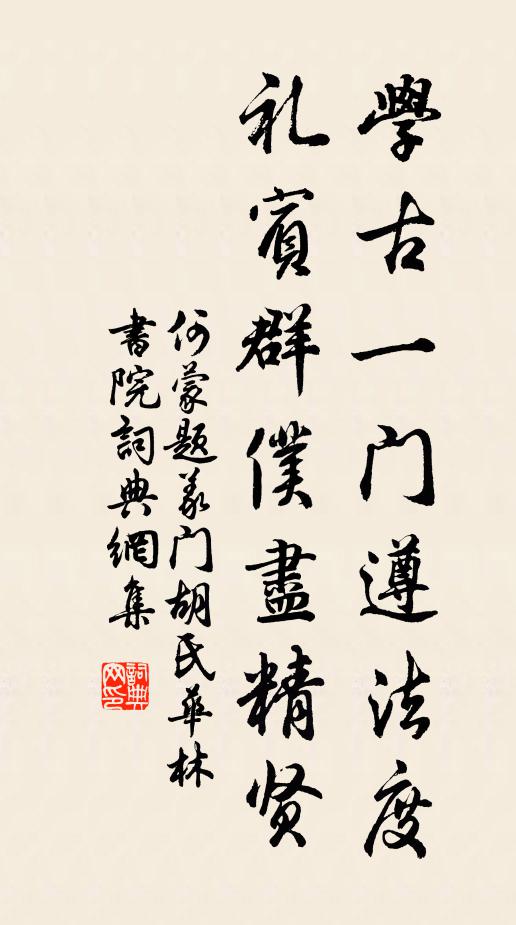 學古一门遵法度
礼賓群僕盡精贤
何蒙题義门胡氏華林
書院詞典網集
詞典
网印